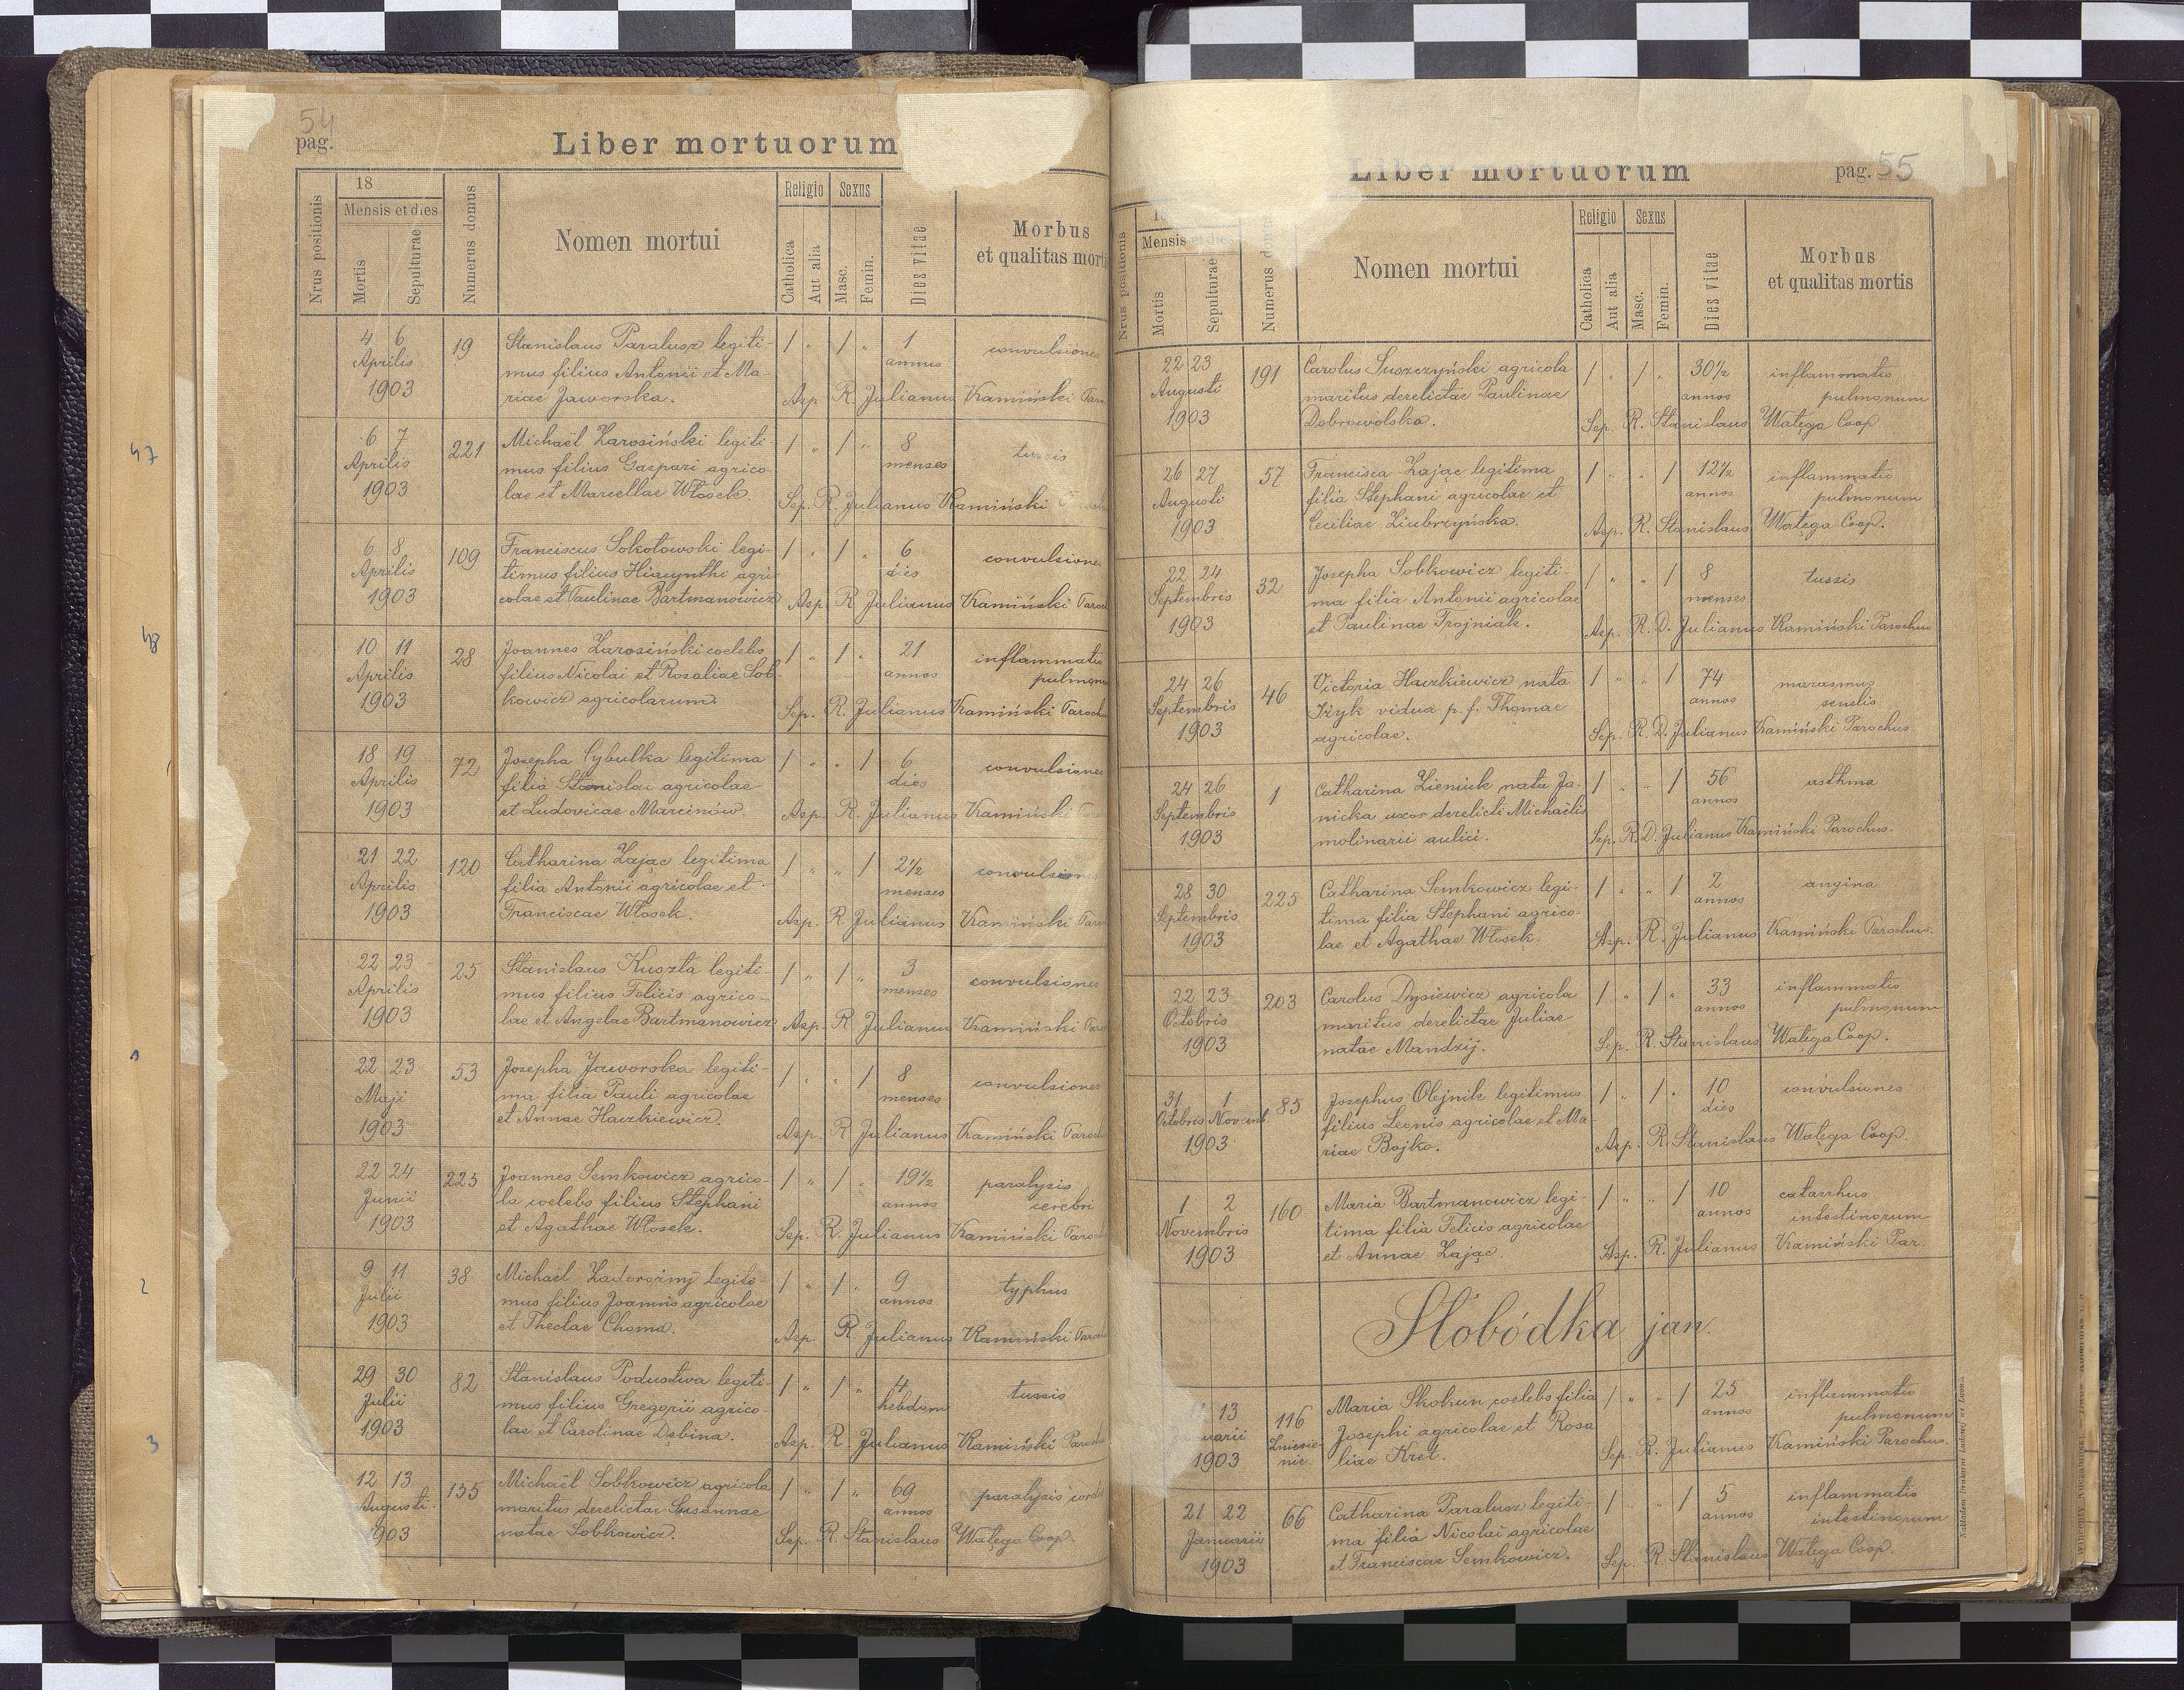 54
pag.
Liber mortuorum
Nrus positionis
18
Mensis et dies
Mortis
Sepulturae
Numerus domus
Nomen mortui
Religio
Catholica
Aut alia
Sexus
Masc.
Femin.
Dies vitae
Morbus
et qualitas morti
4 6 19 Stanislaus Paralusz legiti- / " / " 1 convulsiones
Aprilis mus filius Antonii et Ma- annus
1903 riae Jaworska. Asp. R. Julianus Kamiński Paro
47
6 7 221 Michaël Zarosiński legiti- / " / " 8 tussis
Aprilis mus filius Gaspari agrico- menses
1903 lae et Marcellae Włosek. Sep. R. Julianus Kamiński
6 8 109 Franciscus Sokołowski legi- / " / " 6 convulsiones
Aprilis timus filius Hiacynthi agri- dies
1903 colae et Paulinae Bartmanowicz Asp. R. Julianus Kamiński Paro
48
10 11 28 Joannes Zarosiński coelebs / " / " 21 inflammatio
Aprilis filius Nicolai et Rosaliae Sob- annos pulmonu
1903 kowicz agricolarum. Sep. R. Julianus Kamiński Parochu
18 19 72 Josepha Cybulka legitima / " " / 6 convulsiones
Aprilis filia Stanislai agricolae dies
1903 et Ludovicae Marcinów Asp. R. Julianus Kamiński
21 22 120 Catharina Zając legitima / " " / 2½ convulsiones
Aprilis filia Antonii agricolae et menses
1903 Franciscae Włosek. Asp. R. Julianus Kamiński Paro
22 23 25 Stanislaus Kuszta legiti- / " / " 3 convulsiones
Aprilis mus filius Felicis agrico- menses
1903 lae et Angelae Bartmanowicz Asp. R. Julianus Kamiński Paro
22 23 53 Josepha Jaworska legiti- / " " / 8 convulsiones
Maji ma filia Pauli agricolae menses
1903 et Annae Haczkiewicz. Asp. R. Julianus Kamiński Paroch
22 24 225 Joannes Semkowicz agrico- / " / " 19½ paralysis
Junii la coelebs filius Stephani annos cerebri
1903 et Agathae Włosek. Sep. R. Julianus Kamiński Paroch
2
9 11 38 Michaël Zadorożnij legiti- / " / " 9 typhus
Julii mus filius Joannis agricolae annos
1903 et Theclae Choma. Asp. R. Julianus Kamiński Paroch
29 30 82 Stanislaus Podustwa legiti- / " / " 4 tussis
Julii mus filius Gregorii agrico- hebdom
3
1903 lae et Carolinae Dębina. Asp. R. Julianus Kamiński Parochu
12 13 155 Michaël Sobkowicz agricola / " / " 69 paralysis cordis
Augusti maritus derelictae Susannae annos
1903 natae Sobkowicz. Sep. R. Stanislaus Watęga Coop.
Liber mortuorum
pag. 55
Nrus positionis
Mensis et dies
Mortis
Sepulturae
Numerus domus
Nomen mortui
Religio
Catholica
Aut alia
Sexus
Masc.
Femin.
Dies vitae
Morbus
et qualitas mortis
22 23 191 Carolus Suszczyński agricola / " / " 30½ inflammatio
Augusti maritus derelictae Paulinae annos pulmonum
1903 Dobrowolska. Sep. R. Stanislaus Watęga Coop.
26 27 57 Francisca Zając legitima / " " / 12½ inflammatio
Augusti filia Stephani agricolae et annos pulmonum
1903 Ceciliae Ziubrzyńska. Asp. R. Stanislaus Watęga Coop.
22 24 32 Josepha Sobkowicz legiti- / " " / 8 tussis
Septembris ma filia Antonii agricolae menses
1903 et Paulinae Trojniak. Asp. R. D. Julianus Kamiński Parochus
24 26 46 Victoria Haczkiewicz nata / " " / 74 marasmus
Septembris Iżyk vidua p. f. Thomae annos senilis
1903 agricolae. Sep. R. D. Julianus Kamiński Parochus.
24 26 1 Catharina Zieniuk nata Ja- / " " / 56 asthma
Septembris nicka uxor derelicti Michaëlis annos
1903 molinarii aulici. Sep. R. D. Julianus Kamiński Parochus.
28 30 225 Catharina Semkowicz legi- / " " / 2 angina
Septembris tima filia Stephani agrico- annos
1903 lae et Agathae Włosek. Asp. R. Julianus Kamiński Parochus.
22 23 203 Carolus Dysiewicz agricola / " / " 33 inflammatio
Octobris maritus derelictae Juliae annos pulmonum
1903 natae Mandzij. Sep. R. Stanislaus Watęga Coop.
31 1 85 Josephus Olejnik legitimus / " / " 10 convulsiones
Octobris Novemb. filius Leonis agricolae et Ma- dies
1903 riae Bojko. Asp. R. Stanislaus Watęga Coop.
1 2 160 Maria Bartmanowicz legi- / " " / 10 catarrhus
Novembris tima filia Felicis agricolae annos intestinorum
1903 et Annae Zając. Asp. R. Julianus Kamiński Par.
Słobódka jan.
13 116 Maria Skokun coelebs filia / " " / 25 inflammatio
Januarii Zniesie- Josephi agricolae et Rosa annos pulmonum
1903 nie. liae Kret. Sep. R. Julianus Kamiński Parochus.
21 22 66 Catharina Paralusz legiti- / " " / 5 inflammatio
Januarii ma filia Nicolai agricolae annos intestinorum
1903 et Franciscae Semkowicz. Sep. R. Stanislaus Watęga Coop.